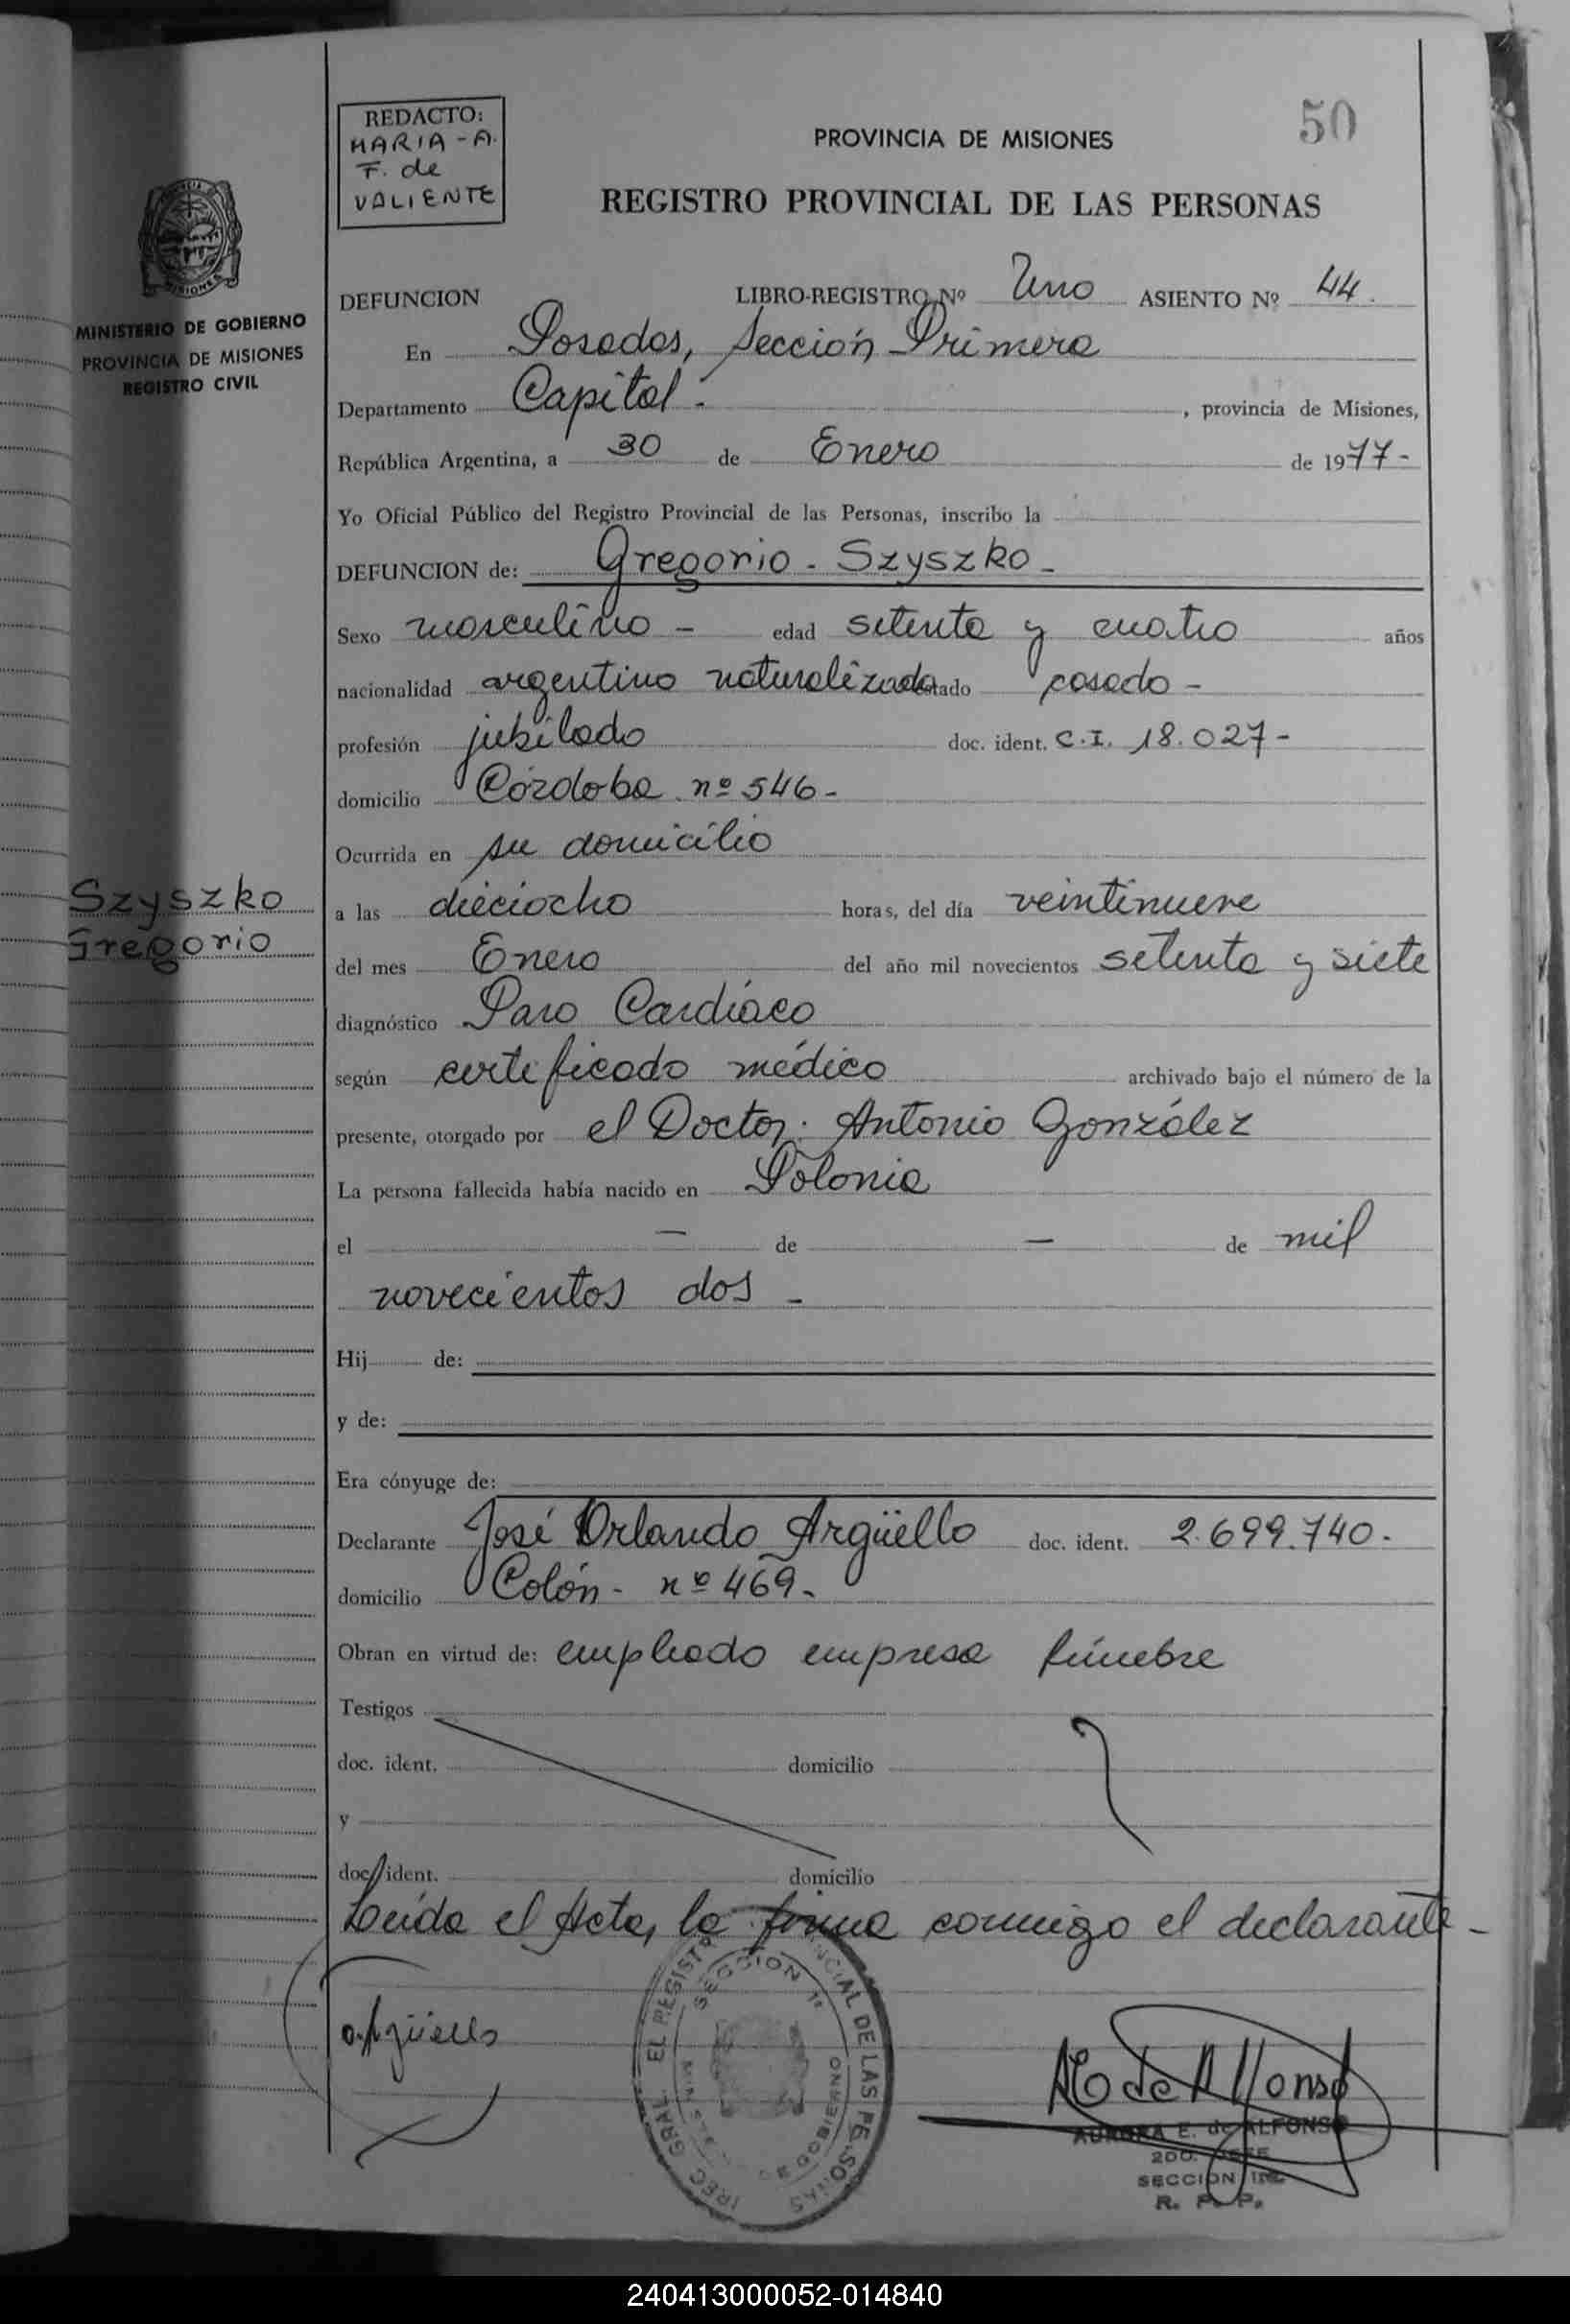 50
REDACTO:
MARIA - A.
F. de
VALIENTE
PROVINCIA DE MISIONES
REGISTRO PROVINCIAL DE LAS PERSONAS
MISIONES
MINISTERIO DE GOBIERNO
PROVINCIA DE MISIONES
REGISTRO CIVIL
DEFUNCION LIBRO-REGISTRO Nº Uno ASIENTO Nº 44.
En Posadas, Sección Primera
Departamento Capital - , provincia de Misiones,
República Argentina, a 30 de Enero de 1977-
Yo Oficial Público del Registro Provincial de las Personas, inscribo la
DEFUNCION de: Gregorio - Szyszko -
Sexo masculino - edad setenta y cuatro años
nacionalidad argentino naturalizado estado casado -
profesión jubilado doc. ident. C.I. 18.027-
domicilio Córdoba nº 546-
Ocurrida en su domicilio
Szyszko
Gregorio
a las dieciocho horas, del día veintinueve
del mes Enero del año mil novecientos setenta y siete
diagnóstico Paro Cardíaco
según certificado médico archivado bajo el número de la
presente, otorgado por el Doctor. Antonio González
La persona fallecida había nacido en Polonia
el — de — de mil
novecientos dos -
Hij de:
y de:
Era cónyuge de:
Declarante José Orlando Argüello doc. ident. 2.699.740.-
domicilio Colón - nº 469-
Obran en virtud de: empleado empresa fúnebre
Testigos
doc. ident. domicilio
y
doc. ident. domicilio
Leída el Acta, la firma conmigo el declarante -
o. Argüello
GRAL EL REGISTR NCIAL DE LAS PERSONAS
SECCION 1ª
GOBIERNO
A E de Alfonso
AURORA E. de ALFONSO
2DO. JEFE
SECCION 1ra.
R. P. P.
240413000052-014840